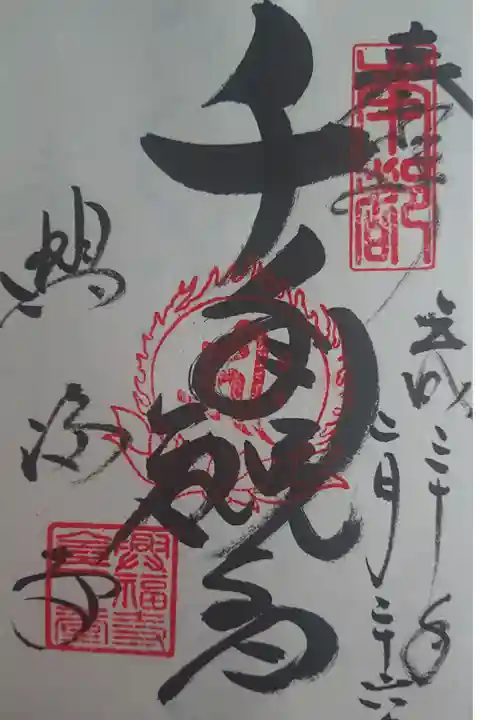 奉拝
平成二十年
二月二十六
千手観音
興福寺
南都
興福寺
金堂